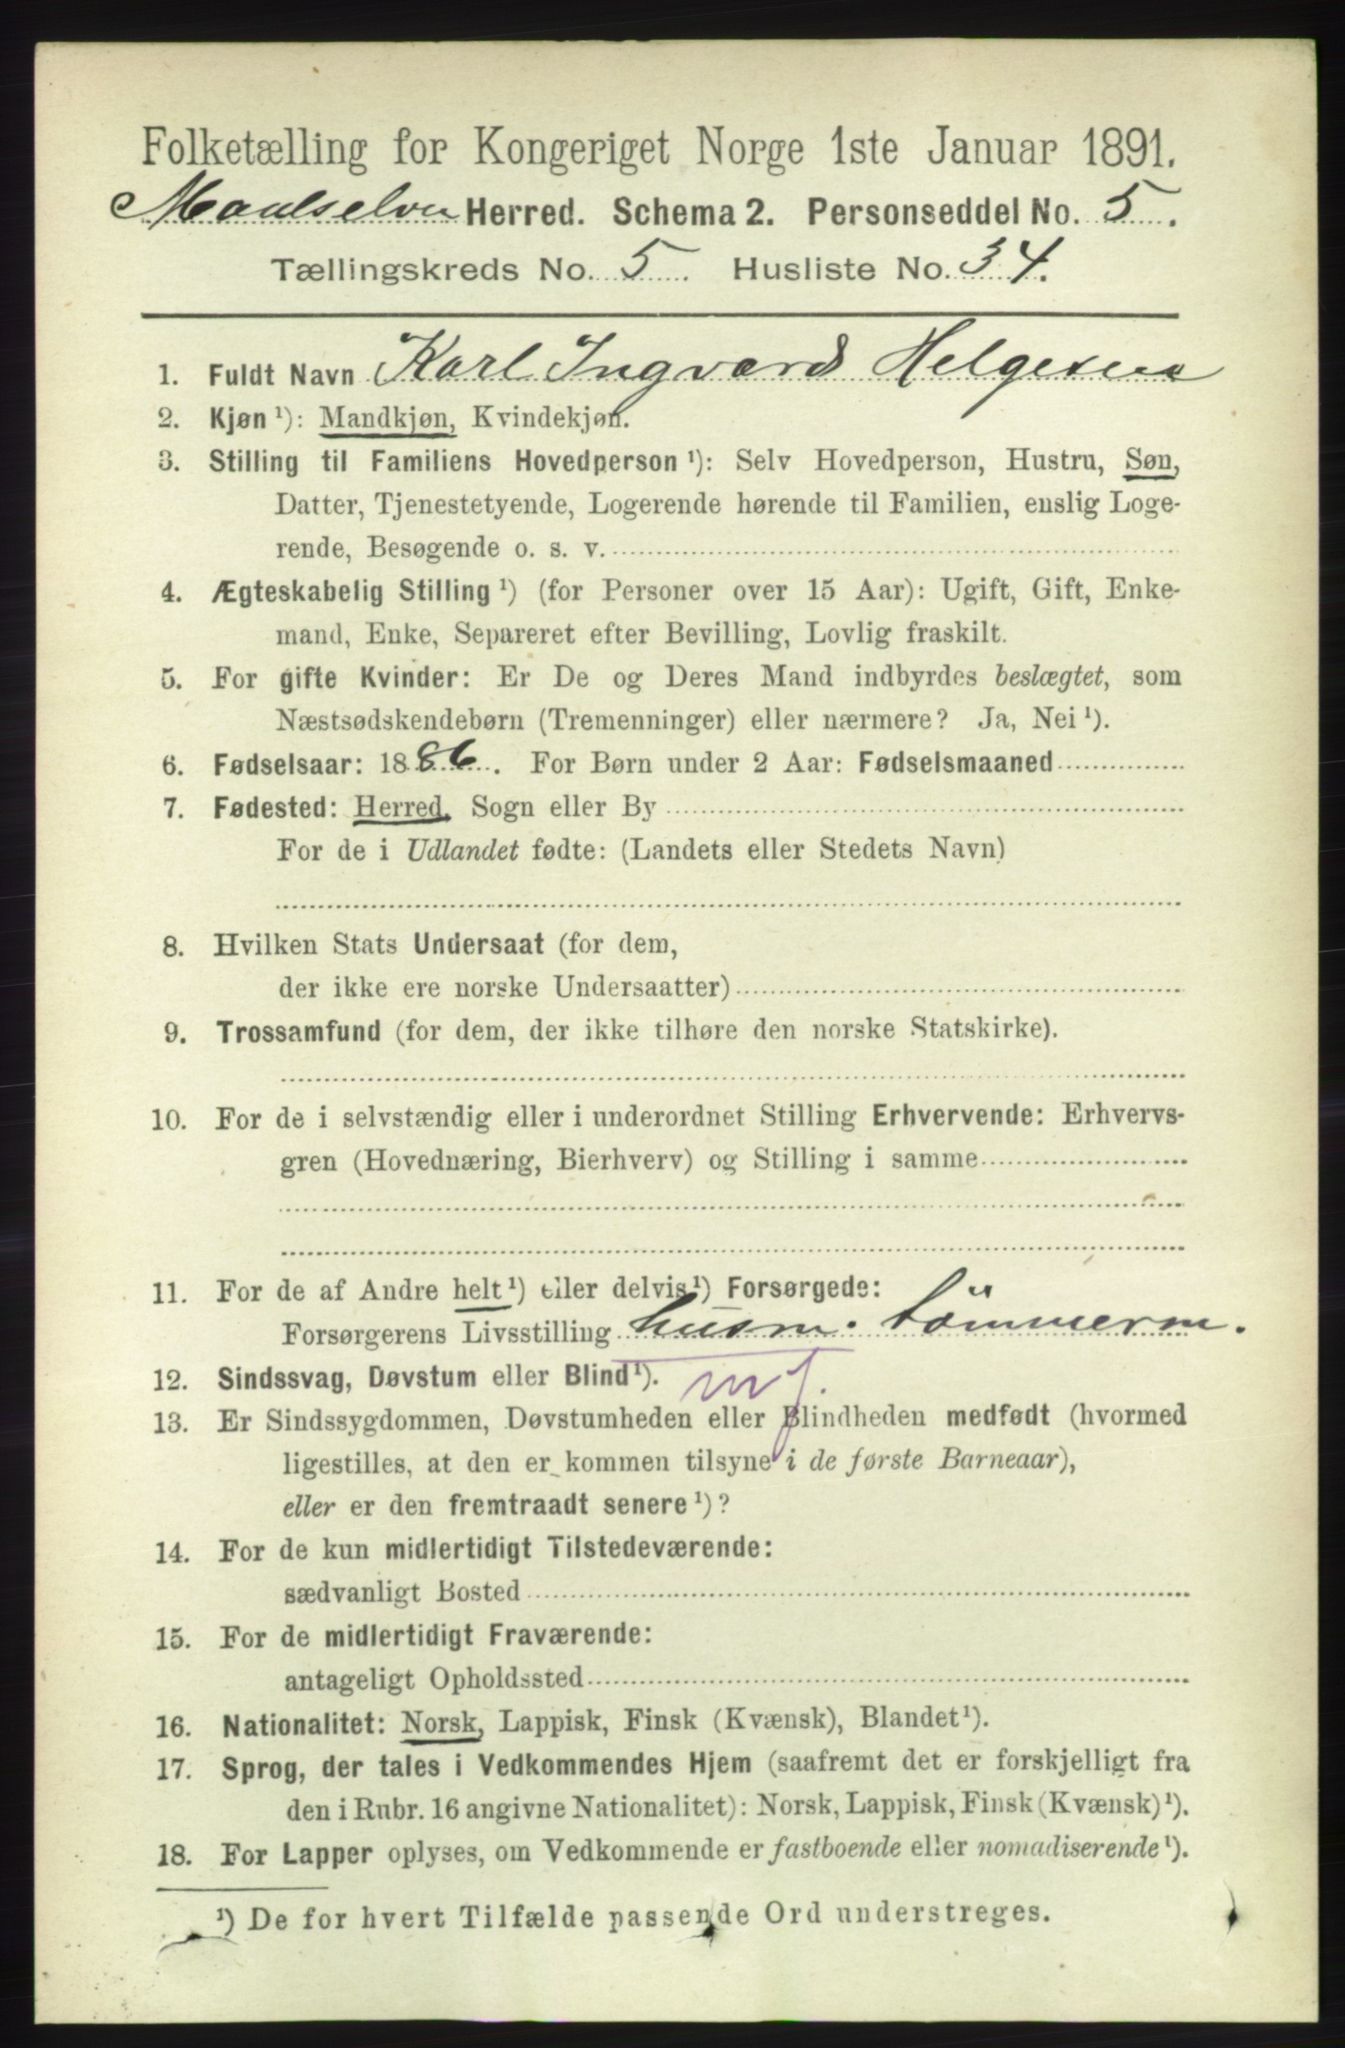 Folketælling for Kongeriget Norge 1ste Januar 1891.
Maalselven Herred. Schema 2. Personseddel No. 5.
Tællingskreds No. 5. Husliste No. 34.
1. Fuldt Navn Karl Ingvard Helgesen
2. Kjøn ¹): Mandkjøn, Kvindekjøn.
3. Stilling til Familiens Hovedperson ¹): Selv Hovedperson, Hustru, Søn,
Datter, Tjenestetyende, Logerende hørende til Familien, enslig Loge-
rende, Besøgende o. s. v.
4. Ægteskabelig Stilling ¹) (for Personer over 15 Aar): Ugift, Gift, Enke-
mand, Enke, Separeret efter Bevilling, Lovlig fraskilt.
5. For gifte Kvinder: Er De og Deres Mand indbyrdes beslægtet, som
Næstsødskendebørn (Tremenninger) eller nærmere? Ja, Nei ¹).
6. Fødselsaar: 1886. For Børn under 2 Aar: Fødselsmaaned
7. Fødested: Herred, Sogn eller By
For de i Udlandet fødte: (Landets eller Stedets Navn)
8. Hvilken Stats Undersaat (for dem,
der ikke ere norske Undersaatter)
9. Trossamfund (for dem, der ikke tilhøre den norske Statskirke).
10. For de i selvstændig eller i underordnet Stilling Erhvervende: Erhvervs-
gren (Hovednæring, Bierhverv) og Stilling i samme
11. For de af Andre helt ¹) eller delvis ¹) Forsørgede:
Forsørgerens Livsstilling husm. tömmerm.
12. Sindssvag, Døvstum eller Blind ¹).
mf.
13. Er Sindssygdommen, Døvstumheden eller Blindheden medfødt (hvormed
ligestilles, at den er kommen tilsyne i de første Barneaar),
eller er den fremtraadt senere ¹)?
14. For de kun midlertidigt Tilstedeværende:
sædvanligt Bosted
15. For de midlertidigt Fraværende:
antageligt Opholdssted
16. Nationalitet: Norsk, Lappisk, Finsk (Kvænsk), Blandet ¹).
17. Sprog, der tales i Vedkommendes Hjem (saafremt det er forskjelligt fra
den i Rubr. 16 angivne Nationalitet): Norsk, Lappisk, Finsk (Kvænsk) ¹).
18. For Lapper oplyses, om Vedkommende er fastboende eller nomadiserende ¹).
¹) De for hvert Tilfælde passende Ord understreges.